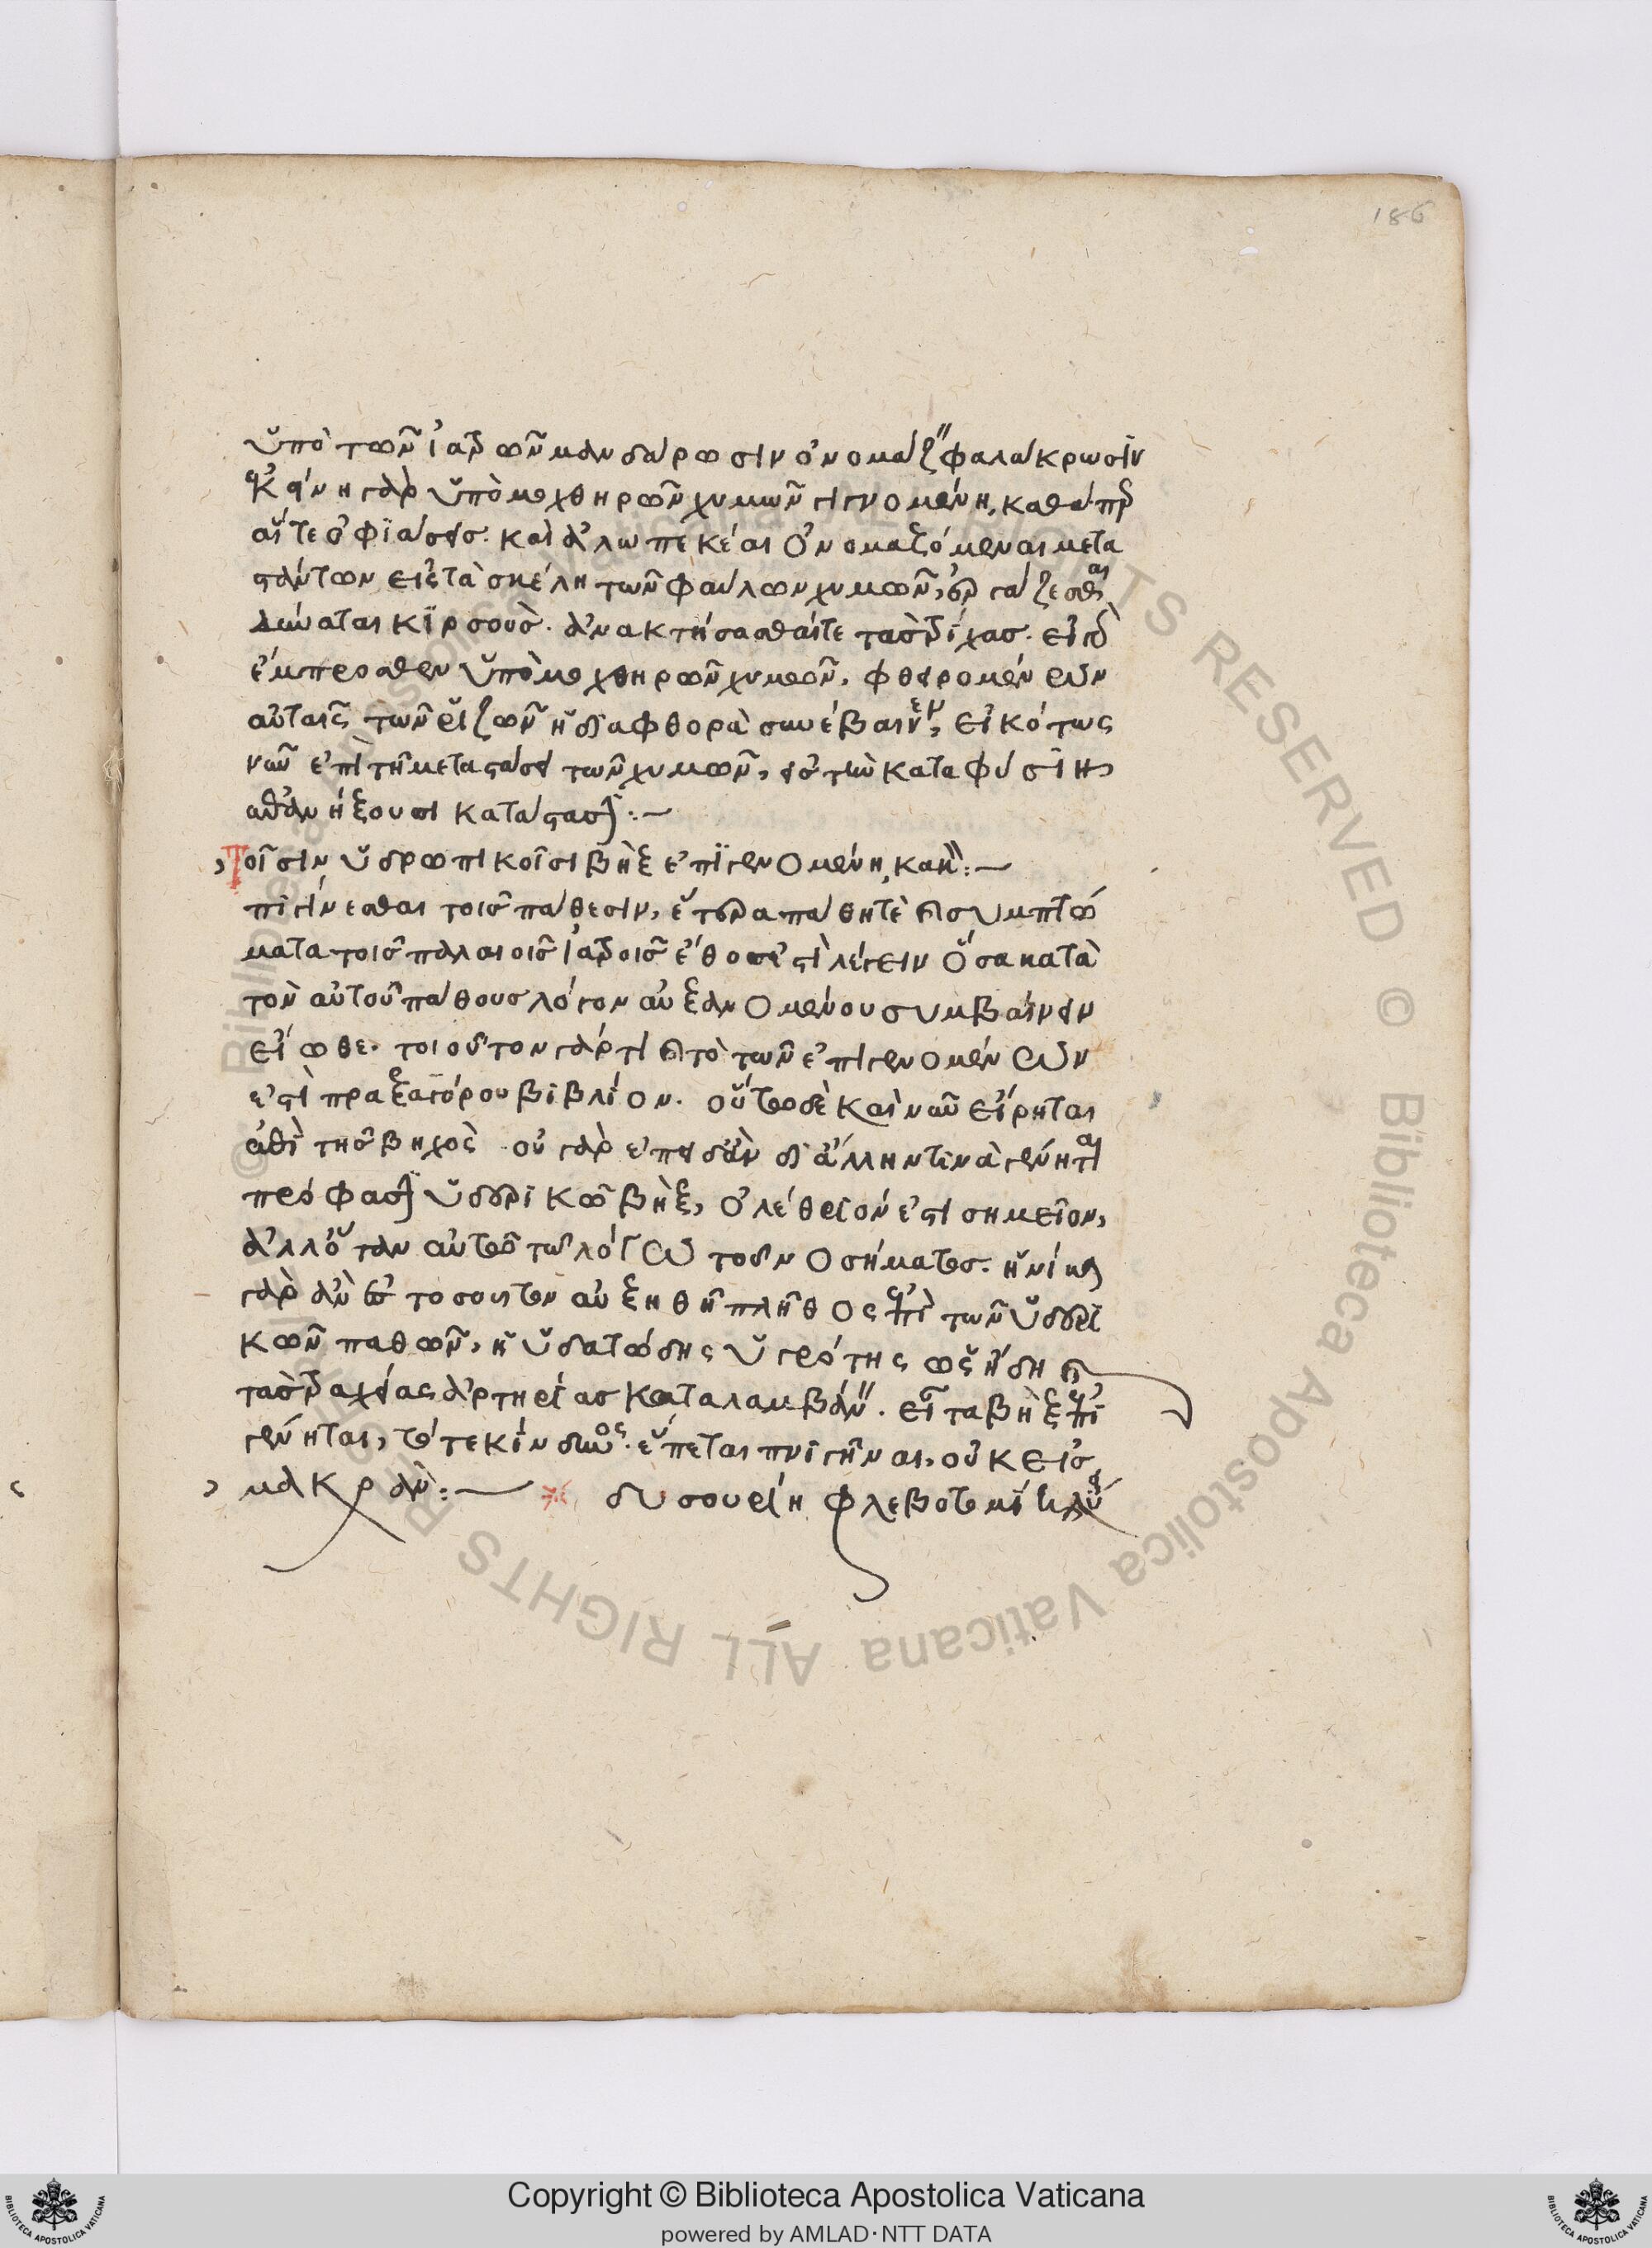 186
ὑπὸ τῶν ἰατρῶν μαδάρωσιν ὀνομάζει φαλάκρωσιν
ἐκείνη γὰρ ὑπὸ μοχθηρῶν χυμῶν γιγνομένη, καθάπερ
αἵ τε ὀφιάσεις. καὶ ἀλωπεκέαι ὀνομαζόμεναι μετα
στάντων εἰς τὰ σκέλη τῶν φαύλων χυμῶν, ἐργάζεσθαι
δύναται κιρσούς. ἀνακτήσασθαί τε τὰς τρίχας. εἰ γὰρ
ἔμπροσθεν ὑπὸ μοχθηρῶν χυμῶν, φθειρομένων
αὐταῖς τῶν ῥιζῶν ἡ διαφθορὰ συνέβαινεν, εἰκότως
νῦν ἐπὶ τῇ μεταστάσει τῶν χυμῶν, εἰς τὴν κατὰ φύσιν
αὖθις ἥξουσι κατάστασιν:—
Τοῖσιν ὑδρωπικοῖσι βὴξ ἐπιγενομένη, κακόν:—
πιγίνεσθαι τοῖς πάθεσιν, ἕτερα πάθη τὲ καὶ συμπτώ
ματα τοῖς παλαιοῖς ἰατροῖς ἔθος ἐστὶ λέγειν ὅσα κατὰ
τὸν αὐτοῦ πάθους λόγον αὐξανομένου συμβαίνειν
εἴωθε. τοιοῦτον γάρ τι καὶ τὸ τῶν ἐπιγενομένων
ἐστὶ πραξαγόρου βιβλίον. οὕτως δὲ καὶ νῦν εἴρηται
περὶ τῆς βηχὸς οὐ γὰρ ἐπειδὰν δι' ἄλλην τινὰ γένηται
πρόφασιν ὑδερικῶ βὴξ, ὀλέθριόν ἐστι σημεῖον,
ἀλλ' ὅταν αὐτῶ τῶ λόγω τοῦ νοσήματος. ἡνίκα
γὰρ ἂν εἰς τοσοῦτον αὐξηθῆ πλῆθος ἐπὶ τῶν ὑδερι
κῶν παθῶν, ἡ ὑδατώδης ὑγρότης ὡς ἤδη καὶ
τὰς τραχείας ἀρτηρίας καταλαμβάνειν. εἶτα βὴξ ἐπι
γένηται, τότε κίνδυνος. ἕπεται πνιγῆναι, οὐκ εἰς
μακράν:— δυσουρίη φλεβοτομίη λύει